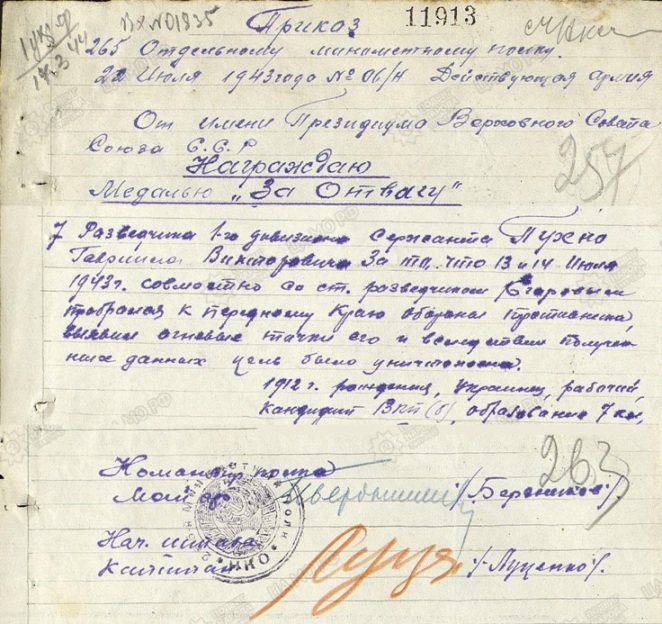 Вх№01835
Приказ
11913
265 Отдельному минометному полку.
22 Июля 1943 года № 06/Н Действующая армия
От имени Президиума Верховного Совета
Союза С.С.Р
Награждаю
Медалью „За Отвагу"
257
7 Разведчика 1-го дивизиона Сержанта Пухно
Гавриила Викторовича За то, что 13 и 14 Июля
1943г. совместно со ст. разведчиком Егоровым
пробрался к переднему Краю обороны Противника,
выявил огневые точки его и вследствии получен
ных данных цель была уничтожена.
1912 г. рождения, Украинец, рабочий,
Кандидат ВКП(б), образование 7 кл,
263
Командир полка
Майор
Нач. штаба
Капитан /Луценко/.